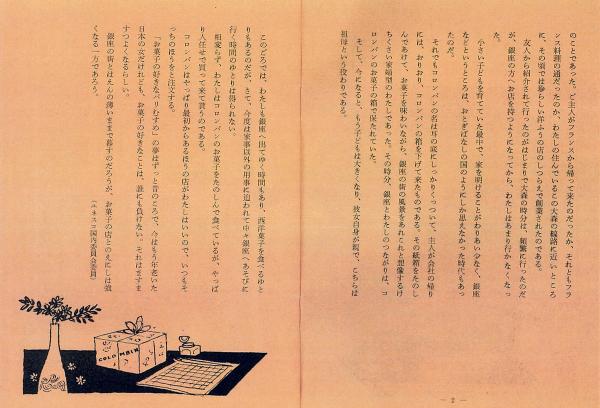 のことであった。ご主人がフランスから帰って来たのだったか、それともフラ
ンス料理の通だったのか、わたしの住んでいるこの大森の線路に近いところ
に、その頃では珍らしい洋ふうの店のしつらえで創業されたのである。
友人から紹介されて行ったのがはじまりで大森の時分は、頻繁に行ったのだ
が、銀座の方へ、お店を持つようになってから、わたしはあまり行かなくなっ
た。
小さい子どもを育てていた最中で、家を明けることがわりあい少なく、銀座
などというところは、おとぎばなしの国のようにしか思えなかった時代もあっ
たのだ。
それでもコロンバンの名は耳の底にしっかりくっついて、主人が会社の帰り
には、おりおり、コロンバンの箱を下げて来たものである。その紙箱をたのし
んであけて、お菓子を味わいながら、銀座の街の風景をあれこれと想像するけ
ちくさい家婦型のわたしであった。その時分、銀座とわたしのつながりは、コ
ロンバンのお菓子の箱で保たれていた。
そして、今になると、もう子どもは大きくなり、彼女自身が親で、こちらは
祖母という役わりである。
— 2 —
このごろでは、わたしも銀座へ出てゆく時間もあり、西洋菓子を食べるゆと
りもあるのだが、さて、今度は家事以外の用事に追われて中々銀座へあそびに
行く時間のゆとりは得られない。
相変らず、わたしはコロンバンのお菓子をたのしんで食べているが、やっぱ
り人任せで買って来て貰うのである。
コロンバンはやっぱり最初からあるほうの店がわたしはいいので、いつもそ
っちのほうをと注文する。
「お菓子の好きなパリむすめ」の夢はずっと昔のころで、今はもう年老いた
日本の女だけれども、お菓子の好きなことは、誰にも負けない。それはますま
すつよくなるらしい。
銀座の街とはえんの薄いままで暮すのだろうが、お菓子の店とのえにしは強
くなる一方であろう。
(ユネスコ国内委員会委員)
COLOMBIN